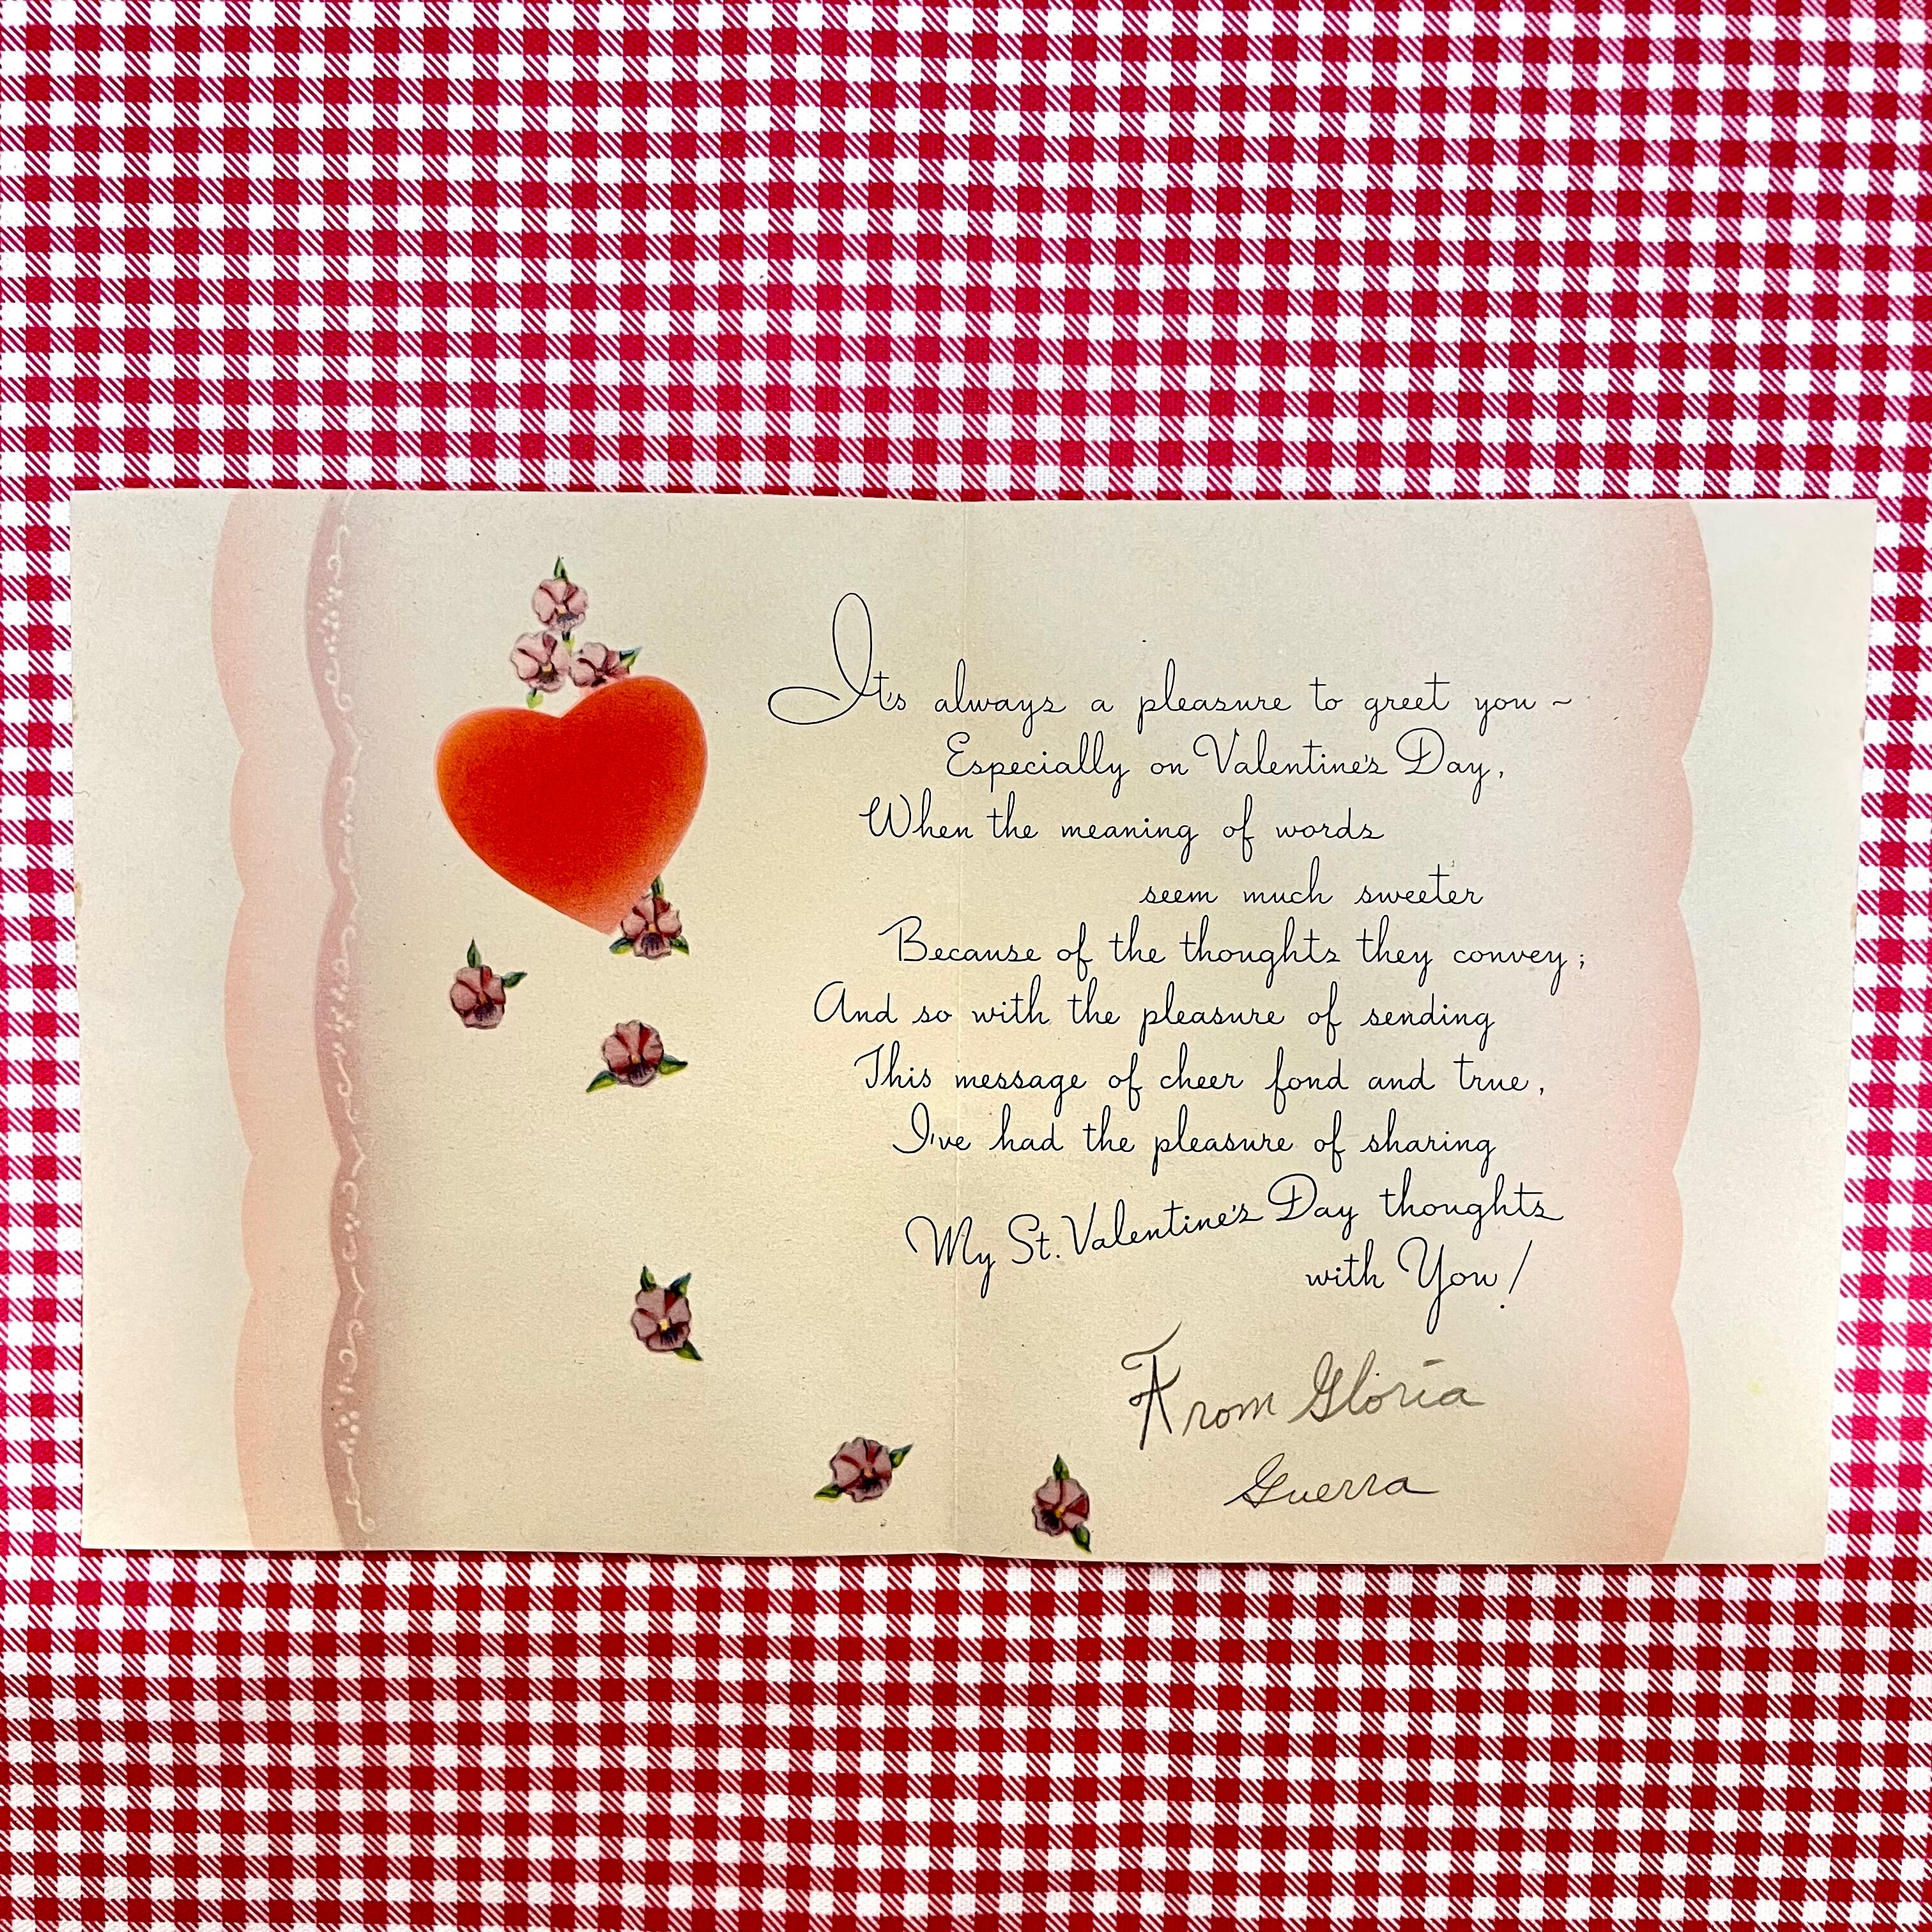 It's always a pleasure to greet you ~
Especially on Valentine's Day,
When the meaning of words
seem much sweeter
Because of the thoughts they convey;
And so with the pleasure of sending
This message of cheer fond and true,
I've had the pleasure of sharing
My St. Valentine's Day thoughts
with You!
From Gloria
Guerra